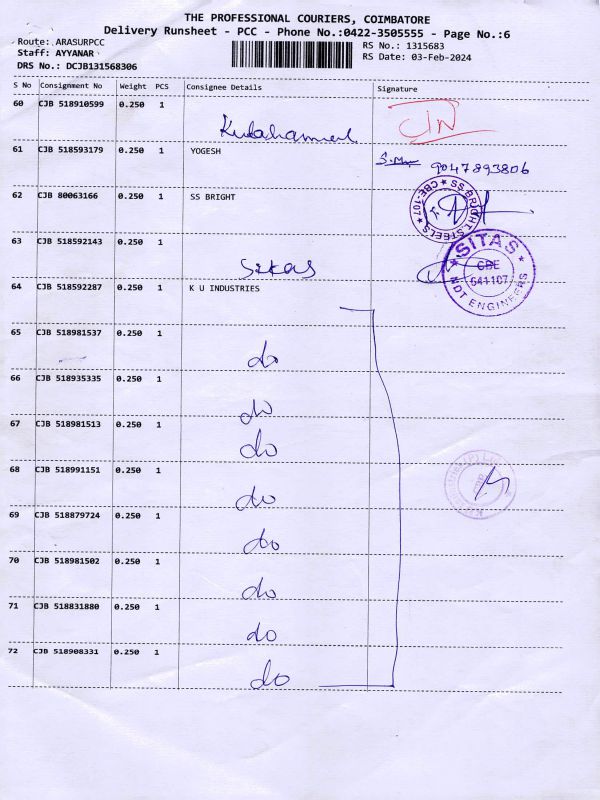 THE PROFESSIONAL COURIERS, COIMBATORE
Delivery Runsheet - PCC - Phone No.:0422-3505555 - Page No.:6
Route: ARASURPCC
RS No.: 1315683
Staff: AYYANAR
RS Date: 03-Feb-2024
DRS No.: DCJB131568306
S No Consignment No Weight PCS Consignee Details Signature
60 CJB 518910599 0.250 1
61 CJB 518593179 0.250 1 YOGESH
9047893806
62 CJB 80063166 0.250 1 SS BRIGHT
SS BRIGHT STEELS ★ CBE-107 ★
63 CJB 518592143 0.250 1
SITAS
CBE
641107
NDT ENGINEERS
64 CJB 518592287 0.250 1 K U INDUSTRIES
65 CJB 518981537 0.250 1
do
66 CJB 518935335 0.250 1
do
67 CJB 518981513 0.250 1
do
68 CJB 518991151 0.250 1
do
69 CJB 518879724 0.250 1
do
70 CJB 518981502 0.250 1
do
71 CJB 518831880 0.250 1
do
72 CJB 518908331 0.250 1
do